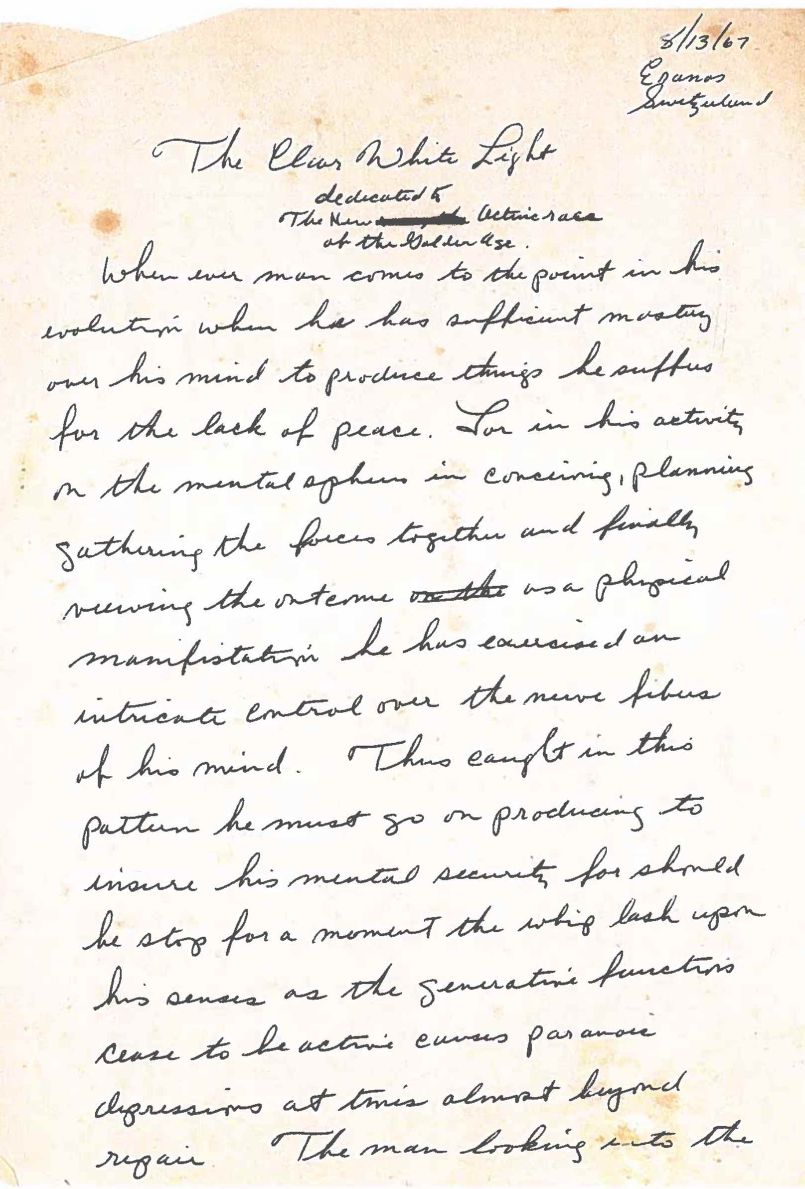 8/13/67
Eranos
Switzerland
The Clear White Light
dedicated to
The New Active race
of the Golden Age.
When ever man comes to the point in his
evolution when he has sufficient mastery
over his mind to produce things he suffers
for the lack of peace. For in his activity
on the mental spheres in conceiving, planning
gathering the forces together and finally
viewing the outcome on the as a physical
manifistation he has exercised an
intricate control over the nerve fibers
of his mind. Thus caught in this
pattern he must go on producing to
insure his mental security for should
he stop for a moment the whip lash upon
his senses as the generative functions
cease to be active causes paranoic
depressions at times almost beyond
repair. The man looking into the